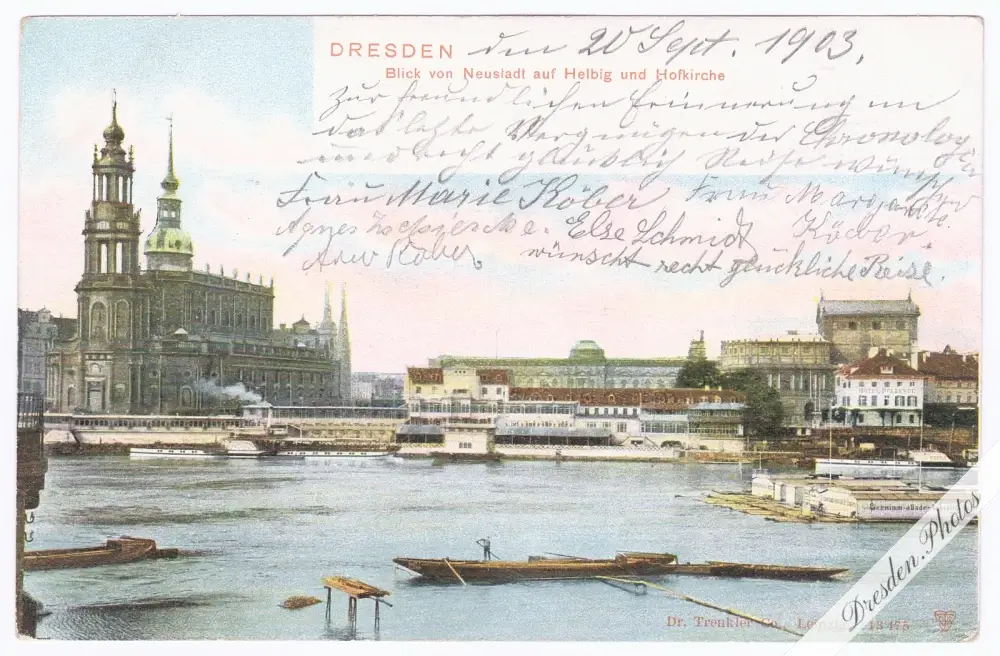 DRESDEN den 20 Sept. 1903.
Blick von Neustadt auf Helbig und Hofkirche
Zur freundlichen Erinnerung an
das letzte Vergnügen der
und recht glücklich Reise
Frau Marie Köber Frau Margarete
Agnes Else Schmidt Köber.
Köber wünscht recht glückliche Reise.
Dr. Trenkler Co., Leipzig. 13475
Dresden.Photos